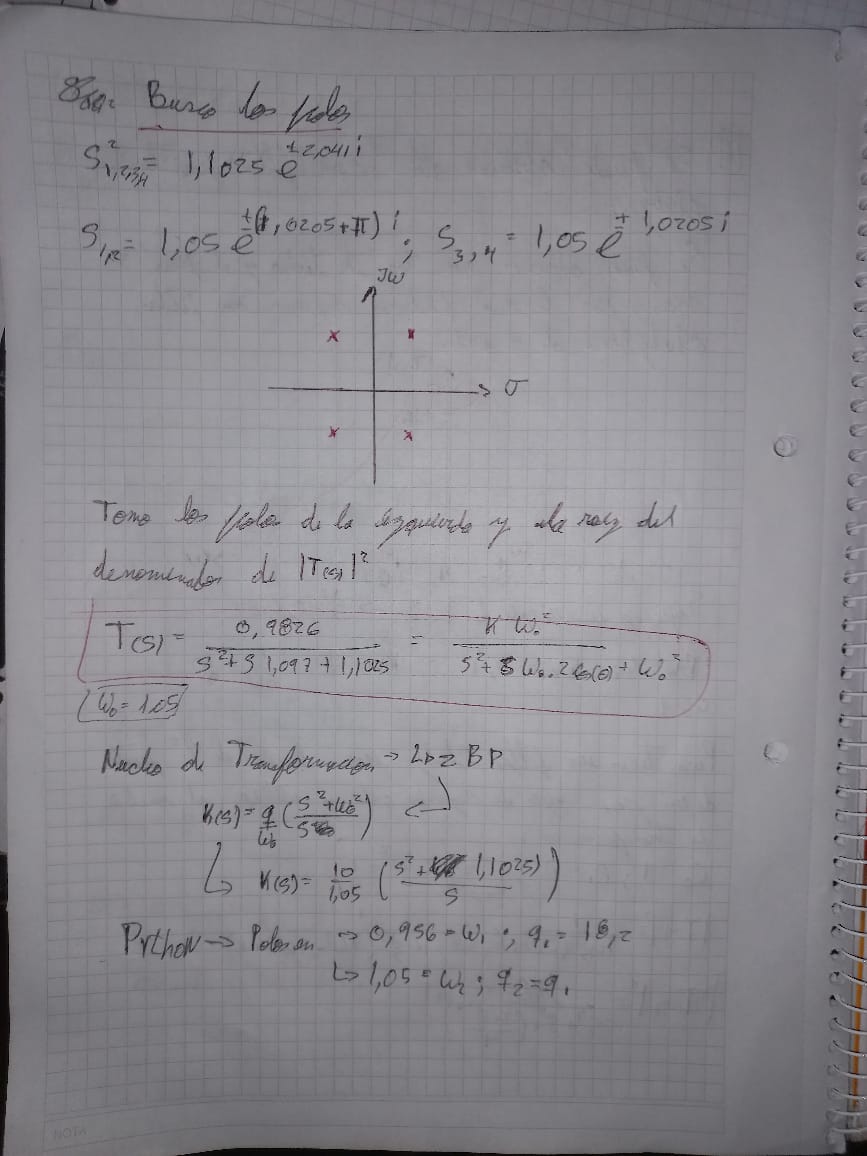 Busco los polos
S²₁,₂,₃,₄ = 1,1025 e^(±2,041 i)
S₁,₂ = 1,05 e^(±(1,0205+π) i) ; S₃,₄ = 1,05 e^(± 1,0205 i)
Jω
σ
Tomo los polos de la izquierda y la raiz del
denominador de |T(s)|²
T(s) = 0,9826 / (S² + S 1,097 + 1,1025) = K ω₀² / (S² + S ω₀. 2 cos(θ) + ω₀²)
ω₀ = 1,05
Nucleo de Transformacion → LP2BP
K(s) = q/ω₀ ((S² + ω₀²)/S)
K(s) = 10/1,05 ((S² + 1,1025)/S)
Python → Polos en → 0,956 = ω₁ ;
↳ 1,05 = ω₂ ; q₂ = q₁
NOTA